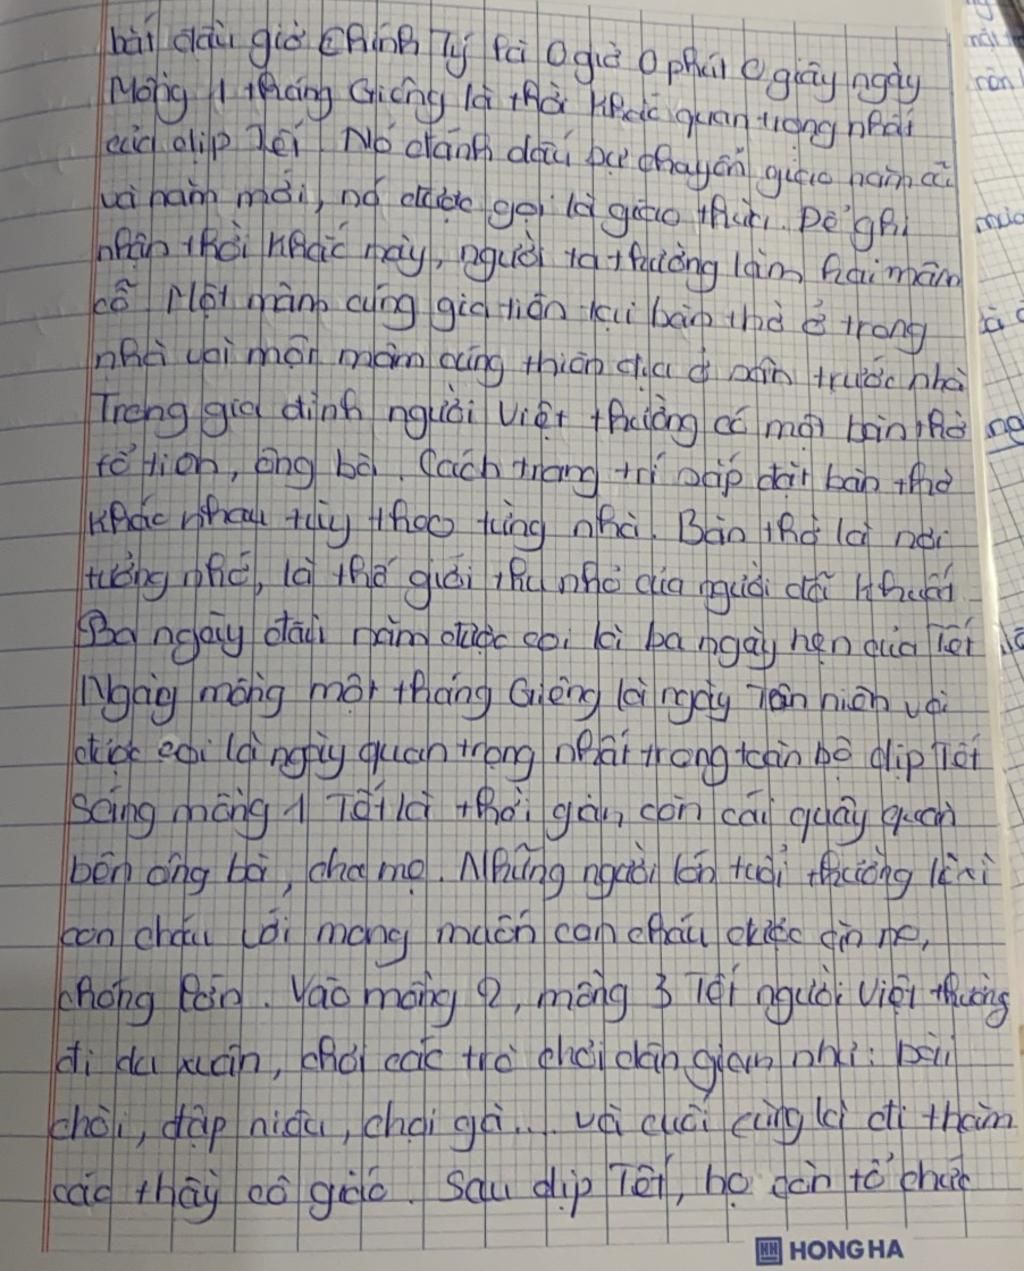 bắt đầu giờ chính Tý là 0 giờ 0 phút 0 giây ngày
Mồng 1 tháng Giêng là thời khắc quan trọng nhất
của dịp Tết. Nó đánh dấu sự chuyển giao năm cũ
và năm mới, nó được gọi là giao thừa. Để ghi
nhận thời khắc này, người ta thường làm hai mâm
cỗ. Một mâm cúng gia tiên tại bàn thờ ở trong
nhà với một mâm cúng thiên địa ở sân trước nhà
Trong gia đình người Việt thường có một bàn thờ
tổ tiên, ông bà. Cách trang trí sắp đặt bàn thờ
khác nhau tùy theo từng nhà. Bàn thờ là nơi
tưởng nhớ, là thế giới thu nhỏ của người đã khuất.
Ba ngày đầu năm được coi là ba ngày hẹn của Tết
Ngày mồng một tháng Giêng là ngày Tân niên và
được coi là ngày quan trọng nhất trong toàn bộ dịp Tết
Sáng mồng 1 Tết là thời gian con cái quây quần
bên ông bà, cha mẹ. Những người lớn tuổi thường lì xì
con cháu với mong muốn con cháu được
chóng lớn. Vào mồng 2, mồng 3 Tết người Việt thường
đi du xuân, chơi các trò chơi dân gian như: bài
chòi, đập niêu, chọi gà... và cuối cùng là đi thăm
các thầy cô giáo. Sau dịp Tết, họ còn tổ chức
HH HONG HA